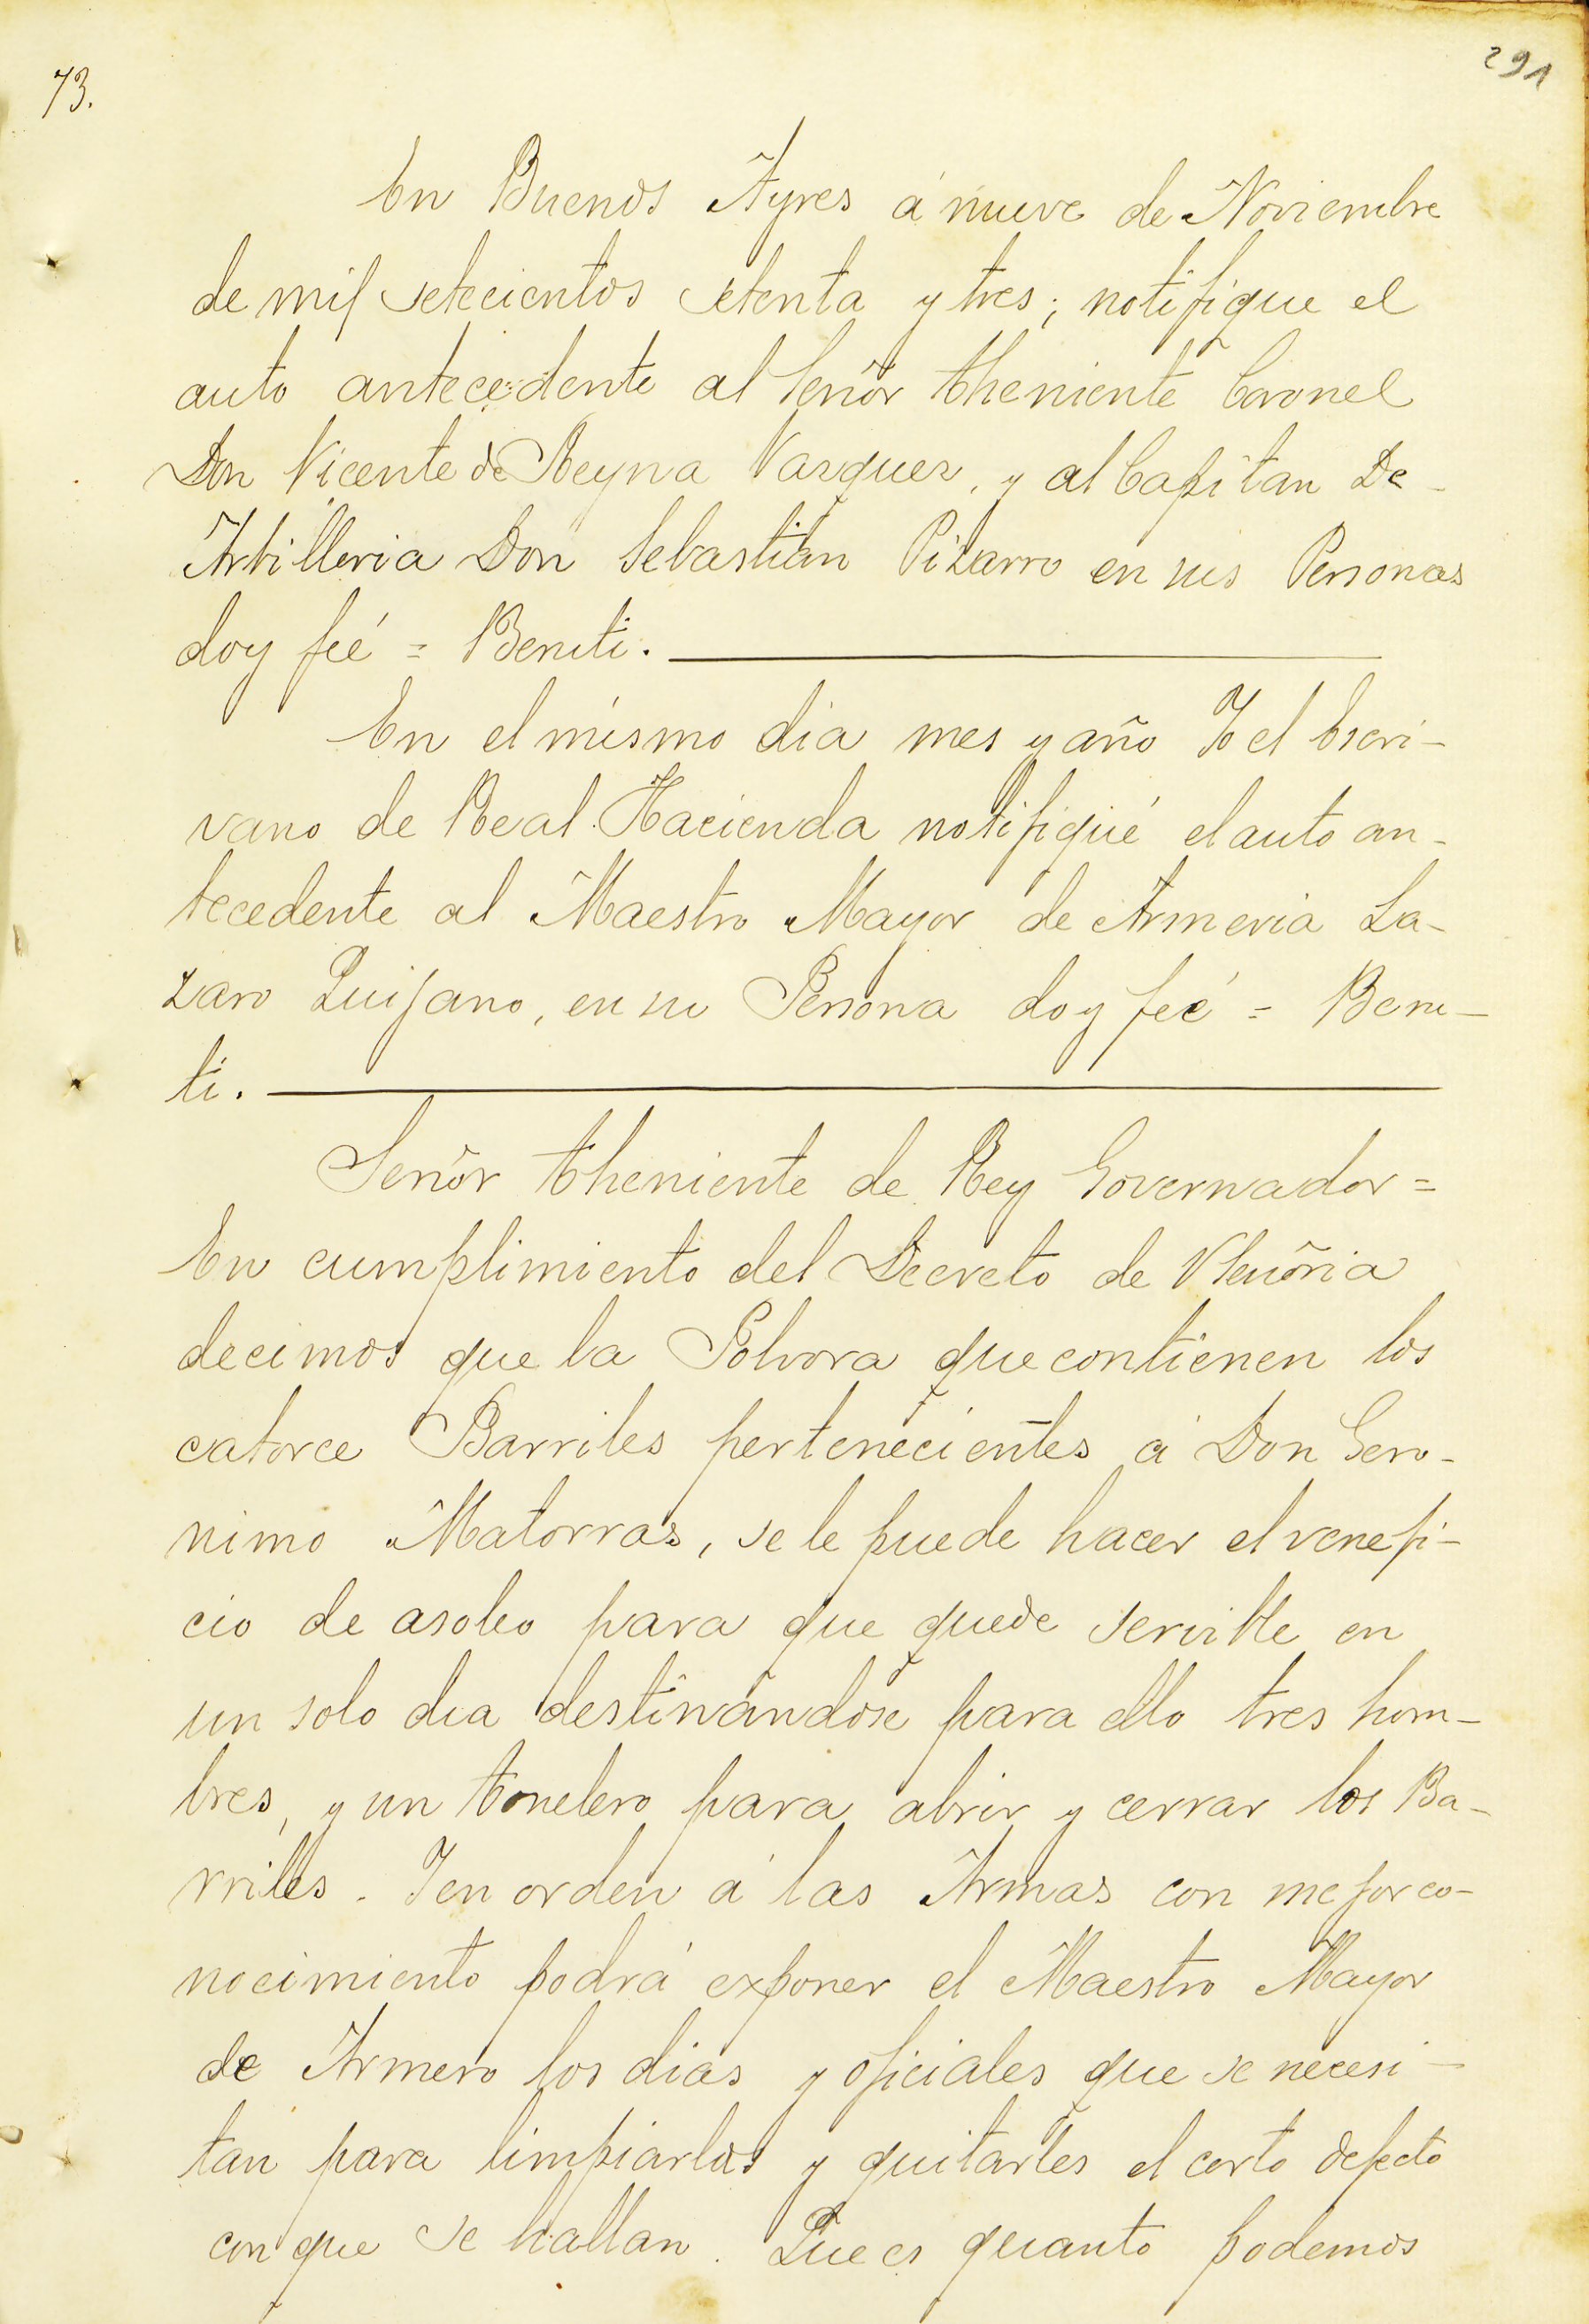 73.
291
En Buenos Ayres á nueve de Noviembre
de mil setecientos setenta y tres; notifique el
auto antecedente al Señor Theniente Coronel
Don Vicente de Reyna Vasquez, y al Capitan De
Artilleria Don Sebastian Pizarro en sus Personas
doy feé = Beruti.
En el mismo dia mes y año Yo el Escri-
vano de Real Hacienda notifiqué el auto an-
tecedente al Maestro Mayor de Armeria La-
zaro Quijano, en su Persona doy feé = Beru-
ti.
Señor Theniente de Rey Governador =
En cumplimiento del Decreto de VSeñoria
decimos que la Polvora que contienen los
catorce Barriles pertenecientes á Don Gero-
nimo Matorras, se le puede hacer el venefi-
cio de asoleo para que quede servible en
un solo dia destinandose para ello tres hom-
bres, y un tonelero para abrir y cerrar los Ba-
rriles. Y en orden á las Armas con mejor co-
nocimiento podrá exponer el Maestro Mayor
de Armero los dias y oficiales que se necesi-
tan para limpiarlas y quitarles el corto defecto
con que se hallan. Que es quanto podemos